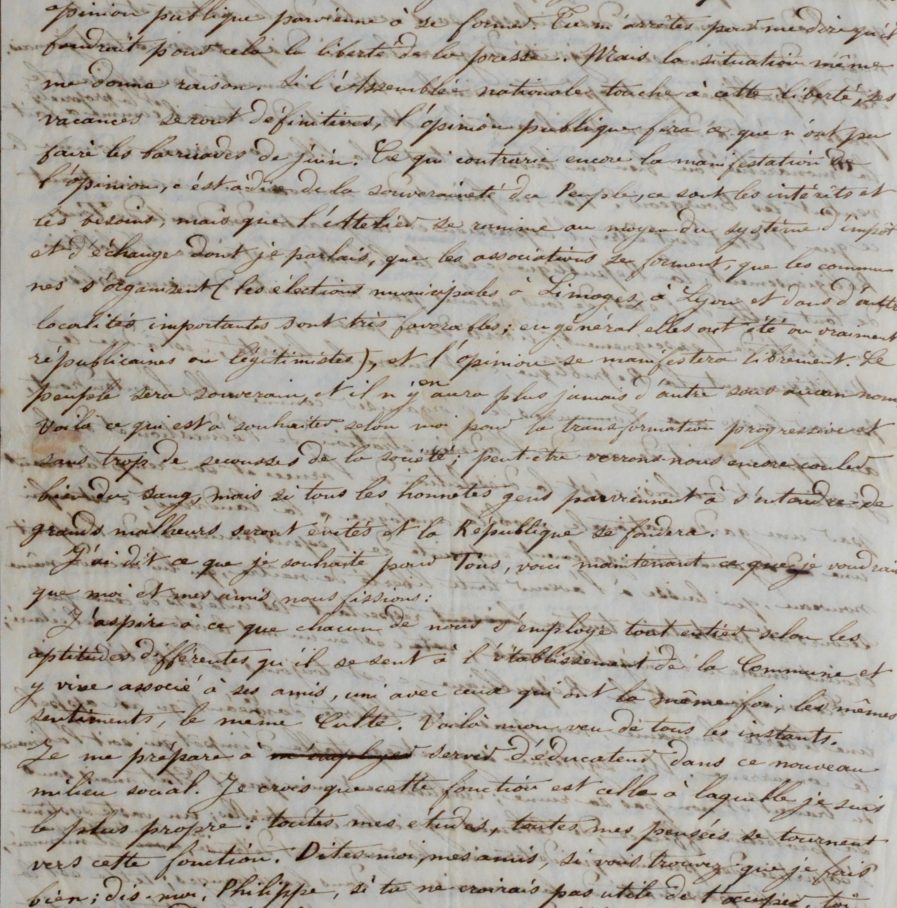 opinion publique parvienne à se former. Tu m'arrêtes pour me dire qu'il
faudrait pour cela la liberté de la presse. Mais la situation même
me donne raison. Si l'Assemblée nationale touche à cette liberté, ses
vacances seront définitives, l'opinion publique fera ce que n'ont pu
faire les barricades de juin. Ce qui contrarie encore la manifestation de
l'opinion, c'est à dire de la souveraineté du Peuple, ce sont les intérêts et
les besoins, mais que l'Atelier se ranime au moyen du système d'impôt
et d'échange dont je parlais, que les associations se forment, que les commu
nes s'organisent (les élections municipales à Limoges, à Lyon et dans d'autres
localités importantes sont très favorables; en général elles ont été ou vraiment
républicaines ou légitimistes), et l'opinion se manifestera librement. Le
peuple sera souverain, et il n'y en aura plus jamais d'autre sous aucun nom
Voilà ce qui est à souhaiter selon moi pour la transformation progressive et
sans trop de secousses de la société; peut être verrons-nous encore couler
bien du sang, mais si tous les honnêtes gens parviennent à s'entendre de
grands malheurs seront évités et la République se fondera.
J'ai dit ce que je souhaite pour Tous, voici maintenant ce que je voudrais
que moi et mes amis nous fissions:
J'aspire à ce que chacun de nous s'employe tout entier selon les
aptitudes différentes qu'il se sent à l'établissement de la Commune et
y vive associé à ses amis, uni avec ceux qui ont la même foi, les mêmes
sentiments, le même Culte. Voilà mon veu de tous les instants.
Je me prépare à servir d'éducateur dans ce nouveau
milieu social. Je crois que cette fonction est celle à laquelle je suis
le plus propre: toutes mes etudes, toutes mes pensées se tournent
vers cette fonction. Dites-moi, mes amis si vous trouvez que je fais
bien; dis-moi, Philippe, si tu ne croirais pas utile de t'occuper, toi